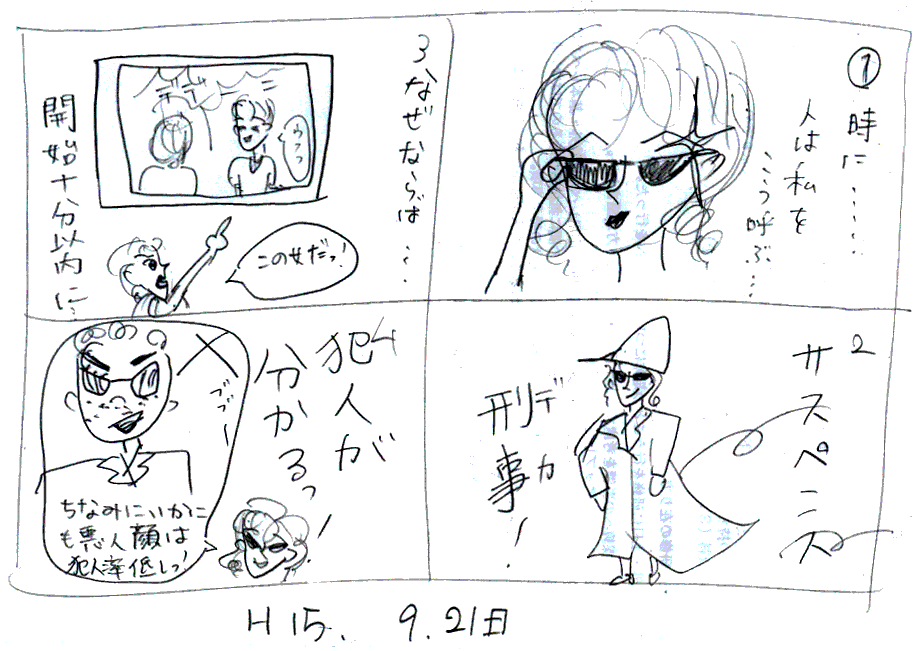 ①
時に……
人は私を
こう呼ぶ…
2
サスペンス
デカ
刑事!
3
なぜならば…
デデーーン
ウフフッ
この女だっ!
開始十分以内に…
4
犯人が
分かるっ!
ブブー
ちなみにいかに
も悪人顔は
犯人率低しっ!
H15. 9.21日